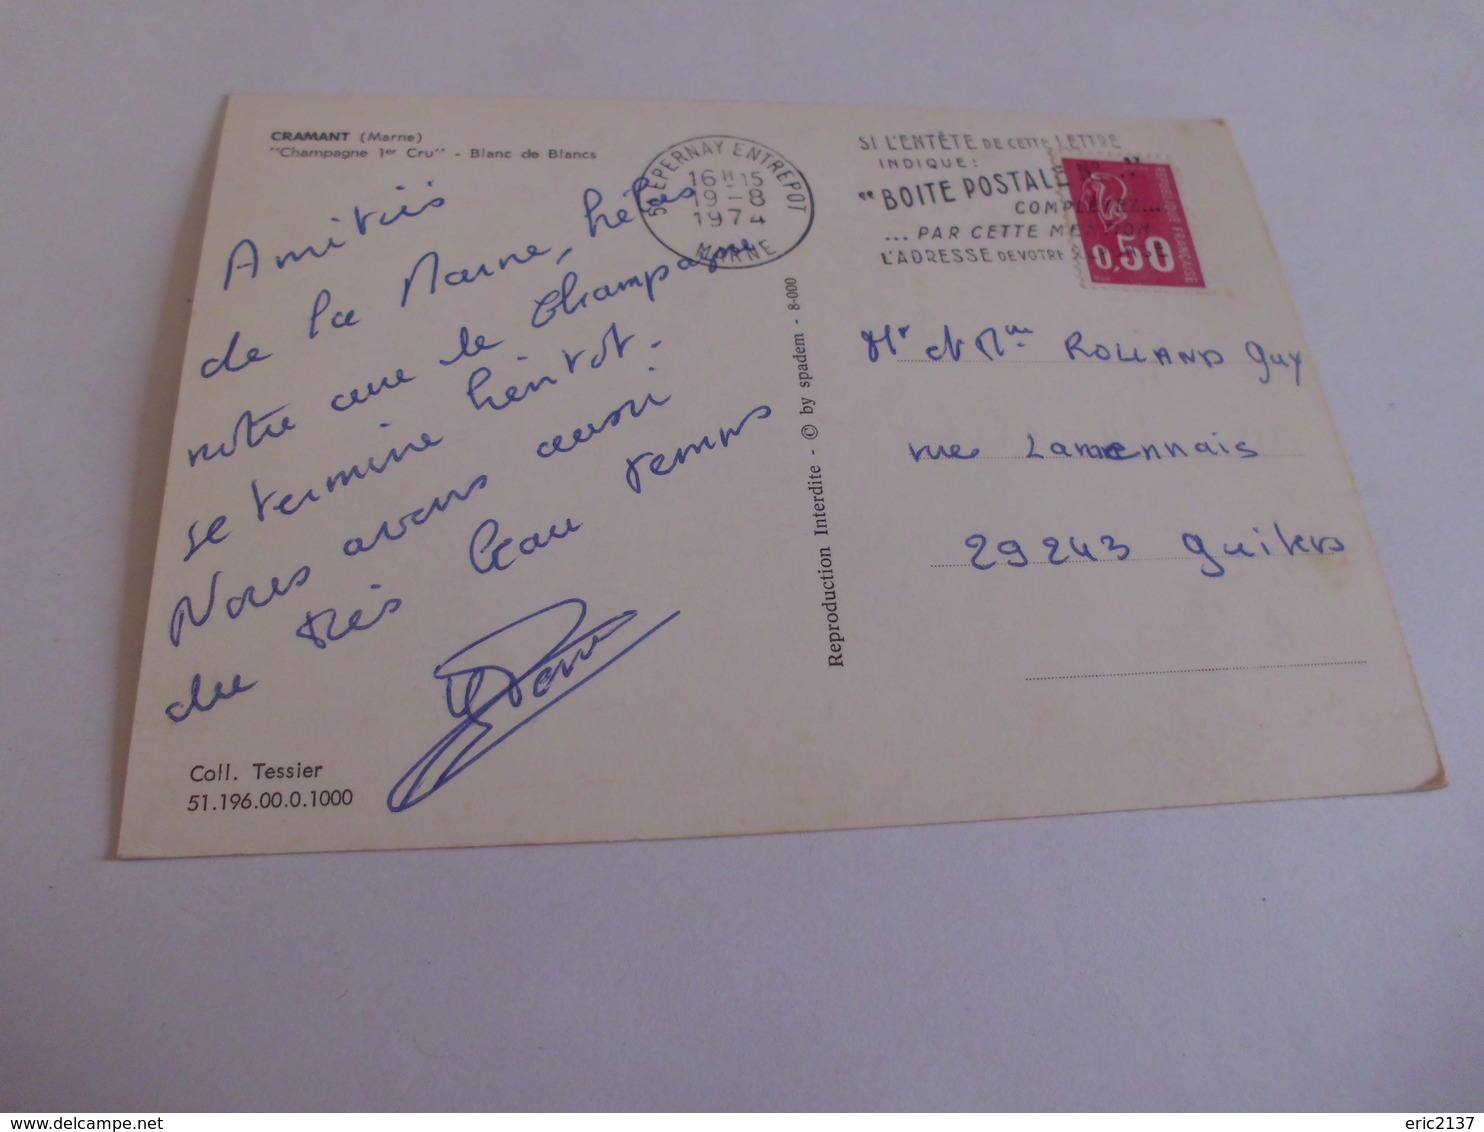 CRAMANT (Marne)
"Champagne 1er Cru" - Blanc de Blancs
Amitiés
de la Marne, hélas
notre cure de Champagne
se termine bientôt.
Nous avons aussi
du très beau temps
Coll. Tessier
51.196.00.0.1000
51 EPERNAY ENTREPOT
16 H 15
19 - 8
1974
MARNE
Reproduction Interdite - © by spadem - 8-000
SI L'ENTÊTE DE CETTE LETTRE
INDIQUE:
"BOITE POSTALE
COMPLETEZ...
... PAR CETTE MENTION
L'ADRESSE DE VOTRE
0,50
REPUBLIQUE FRANÇAISE
Mr et Mme ROLLAND Guy
rue Lamennais
29243 Guilers
eric2137